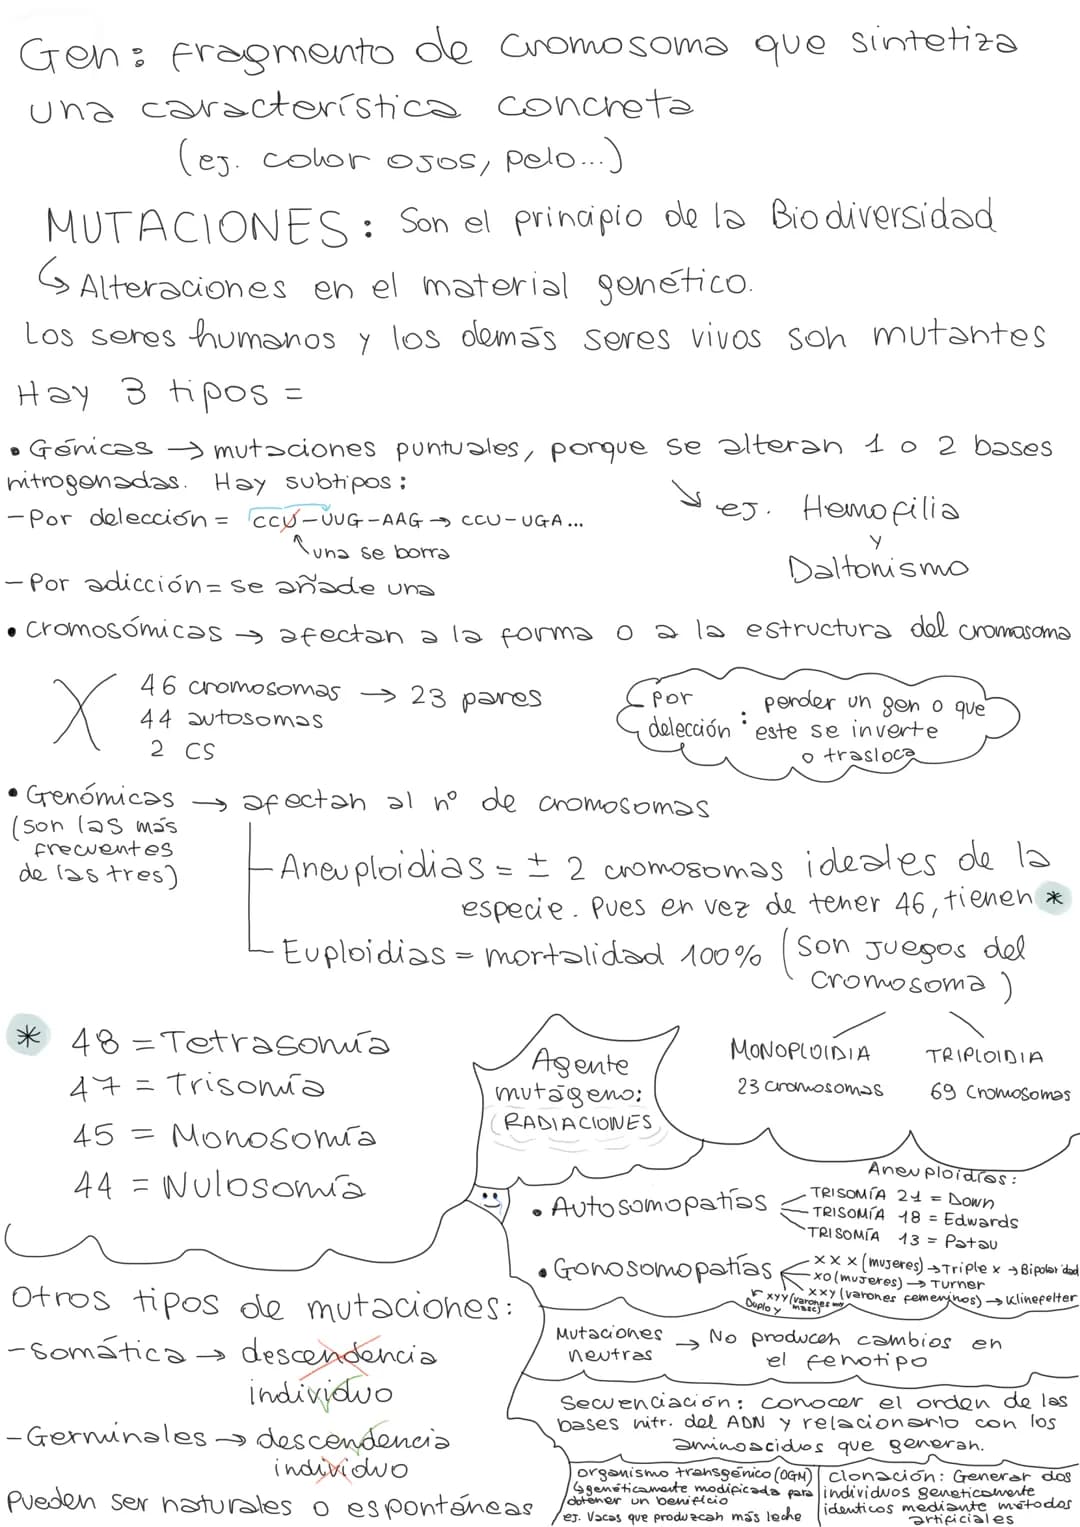 Gen: Fragmento de cromosoma que sintetiza
una característica concreta
(ej. color ojos, pelo...)
MUTACIONES: Son el principio de la Biodiversidad
↳ Alteraciones en el material genético.
Los seres humanos y los demás seres vivos son mutantes
Hay 3 tipos =
• Génicas → mutaciones puntuales, porque se alteran 1 o 2 bases
nitrogenadas. Hay subtipos:
↘ ej. Hemofilia
y
Daltonismo
- Por delección = CCU-UUG-AAG → CCU-UGA...
una se borra
- Por adicción = se añade una
• Cromosómicas → afectan a la forma o a la estructura del cromosoma
X
46 cromosomas → 23 pares
44 autosomas
2 CS
Por delección : perder un gen o que
este se inverte
o trasloca
• Genómicas → afectan al nº de cromosomas
(son las más
frecuentes
de las tres)
- Aneuploidias = ± 2 cromosomas ideales de la
especie. Pues en vez de tener 46, tienen *
- Euploidias = mortalidad 100% (Son juegos del
cromosoma)
MONOPLOIDIA
23 cromosomas
TRIPLOIDIA
69 cromosomas
* 48 = Tetrasomía
47 = Trisomía
45 = Monosomía
44 = Nulosomía
Agente
mutágeno:
RADIACIONES
Aneuploidías:
• Autosomopatías
TRISOMÍA 21 = Down
TRISOMÍA 18 = Edwards
TRISOMÍA 13 = Patau
• Gonosomopatías
XXX (mujeres) → Triple x → Bipolaridad
XO (mujeres) → Turner
XXY (varones femeninos) → Klinefelter
XYY (varones muy masc)
Duplo y
Otros tipos de mutaciones:
- Somática → descendencia
individuo
- Germinales → descendencia
individuo
Pueden ser naturales o espontáneas
Mutaciones neutras → No producen cambios en
el fenotipo
Secuenciación: conocer el orden de las
bases nitr. del ADN y relacionarlo con los
aminoacidos que generan.
organismo transgénico (OGM)
↳ genéticamente modificada para
obtener un beneficio
ej. Vacas que produzcan más leche
clonación: Generar dos
individuos geneticamente
identicos mediante métodos
artificiales